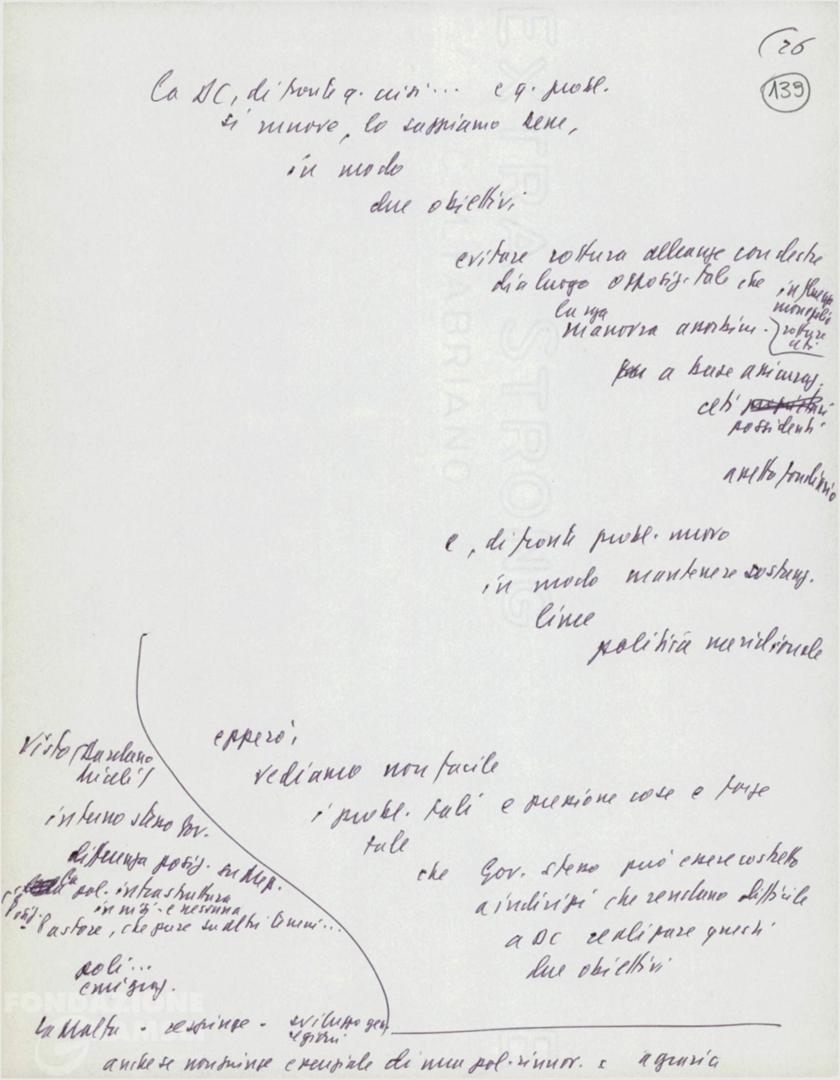 26
139
La DC, di fronte q. crisi... e q. probl.
si muove, lo sappiamo bene,
in modo
due obiettivi
evitare rottura alleanze con destre
dia luogo opposiz. tale che
lunga
manovra
rotture
ceti
a base
ceti
possidenti
assetto fondiario
e, di fronte probl. nuovo
in modo mantenere sostanz.
linee
politica meridionale
epperò,
vediamo non facile
i probl. tali e pressione cose e forze
tale
che Gov. stesso può essere costretto
a indirizzi che rendano difficile
a DC realizzare questi
due obiettivi
Visto (Dardano
Miceli)
interno stesso Gov.
differenza posiz. su Mezz.
pol. infrastruttura
iniz. e nessuna
Pastore, che pure su altri temi...
poli...
emigraz.
La Malfa - respinge - sviluppo gen.
regioni
anche se non spinge essenziale di una pol. rinnov. : agraria
EXTRA STRONG
FABRIANO
FONDAZIONE